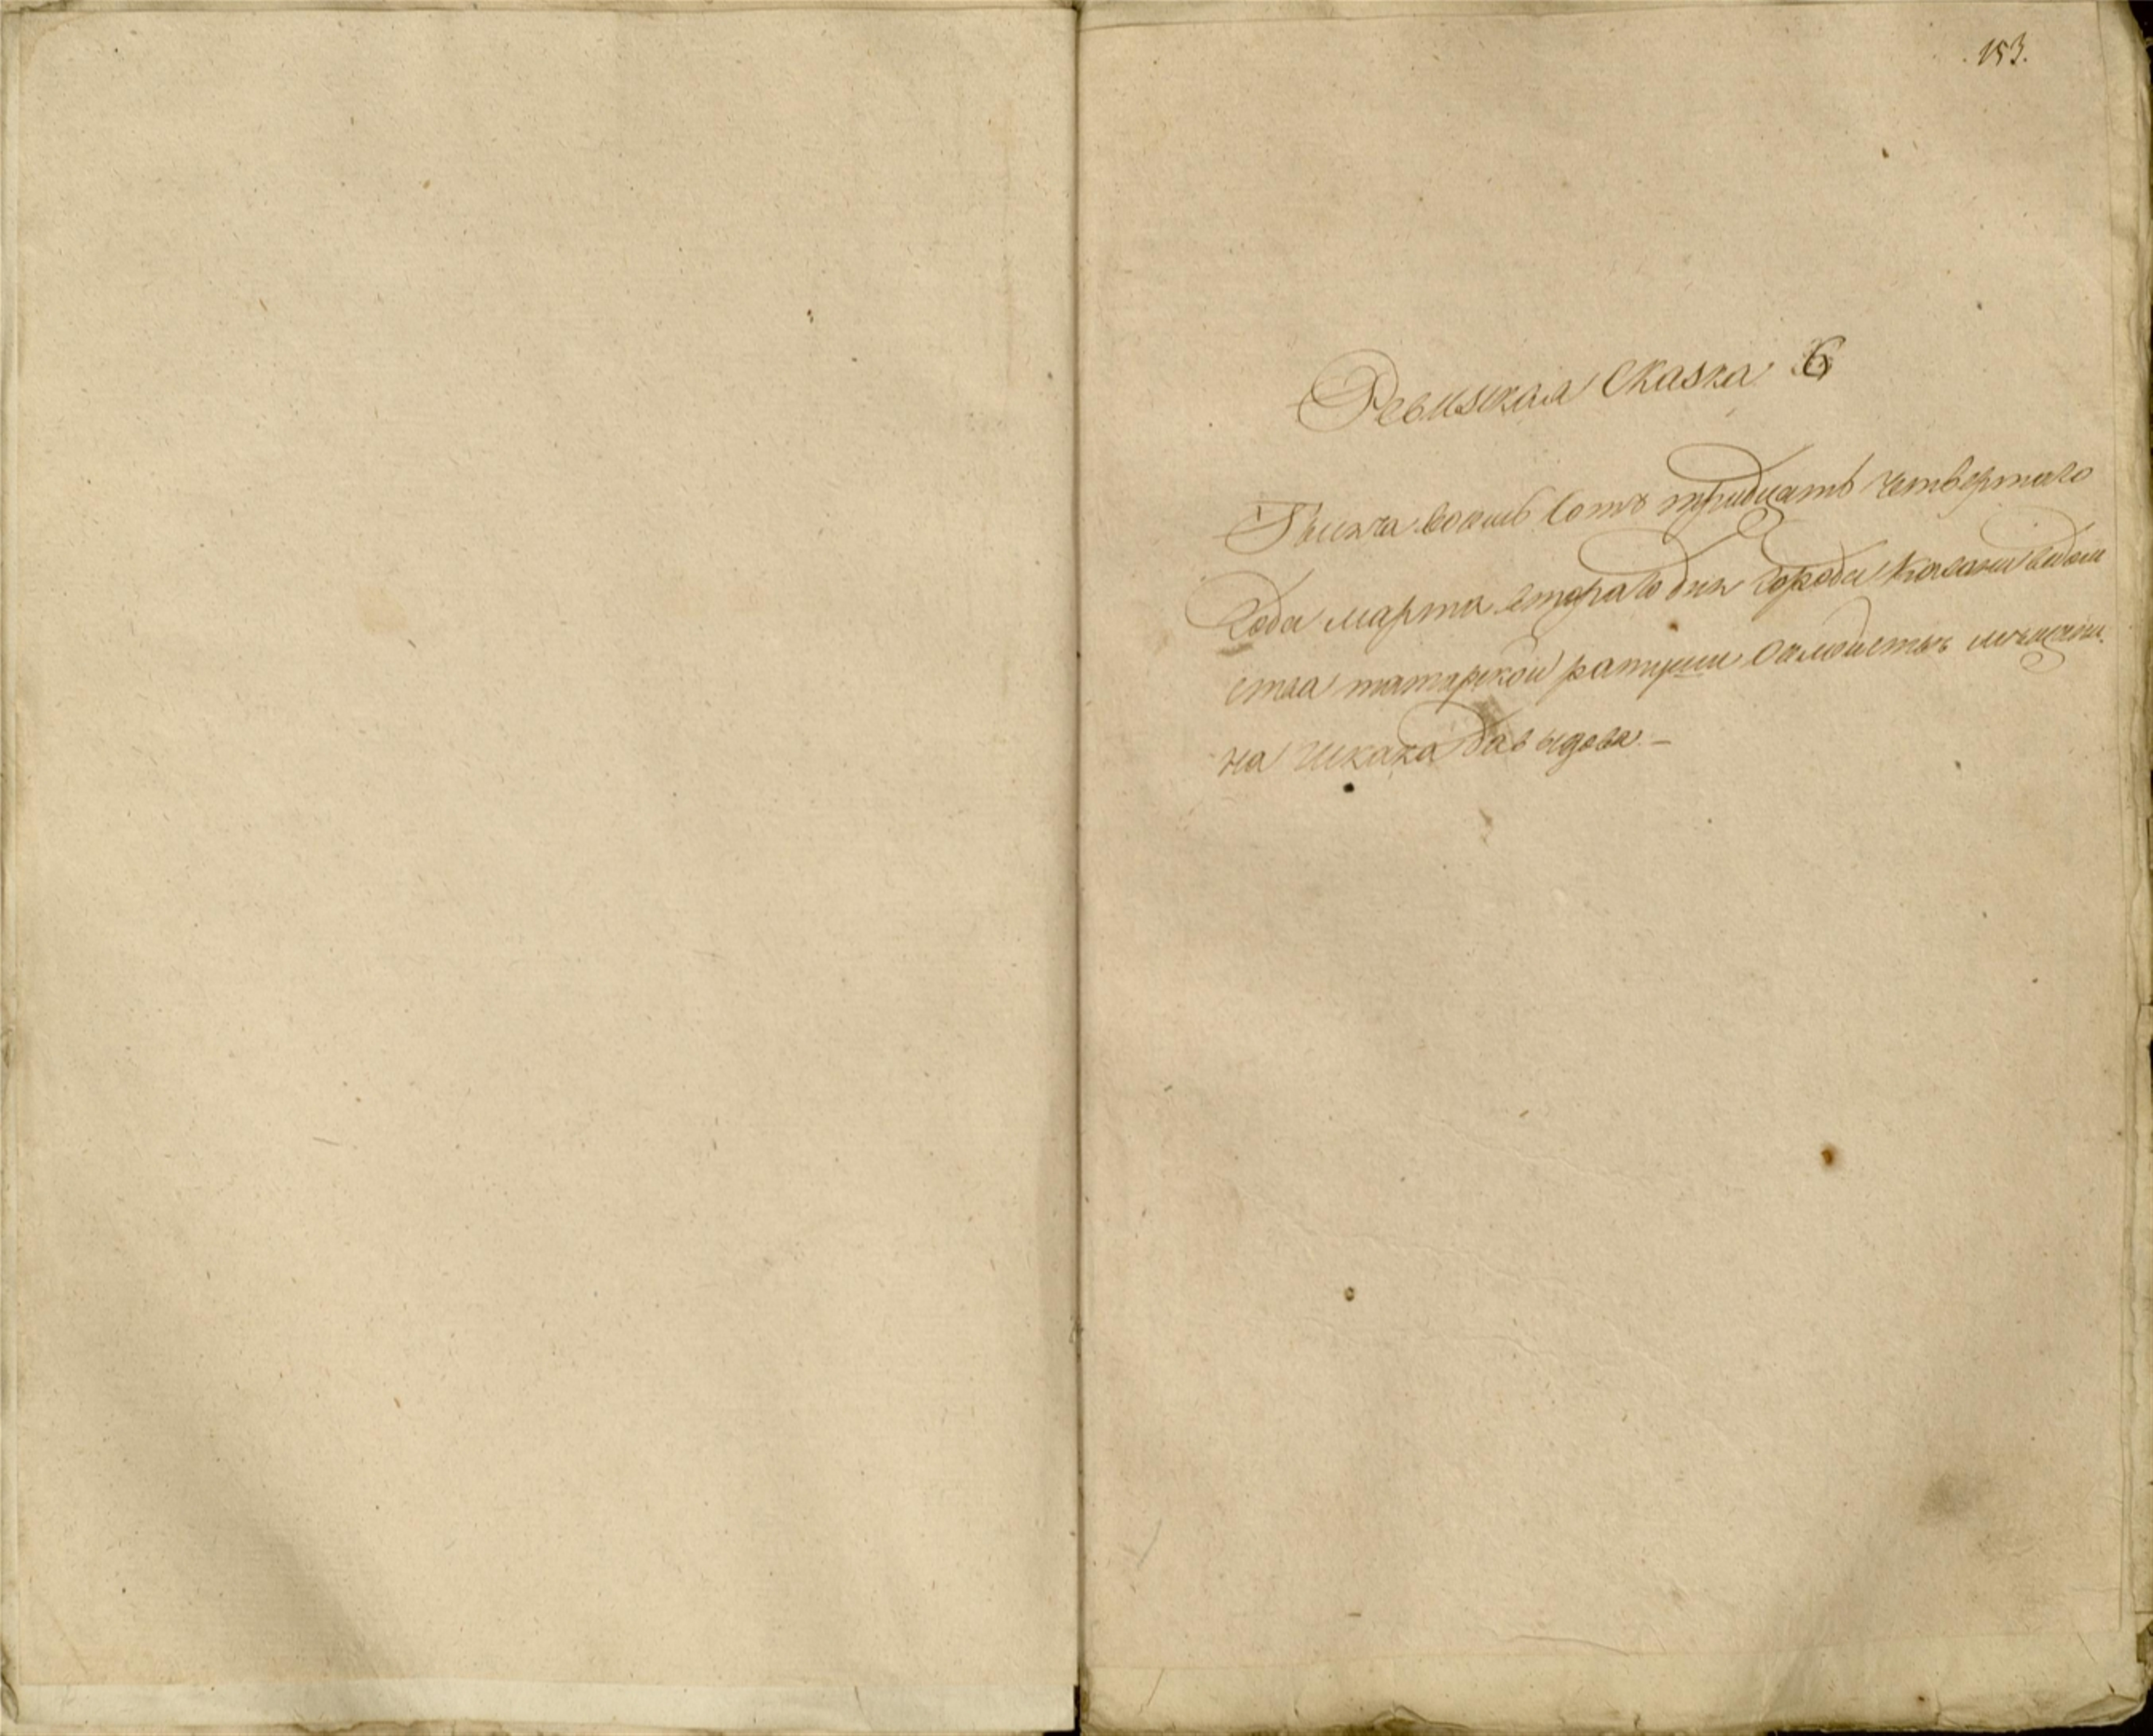 153.
Ревизская Сказка 6
Тысяча восемь сотъ тридцать четвертаго
Года марта втораго дня Города Казани ведом
ства татарской ратуши мещани
на Давыдова. —